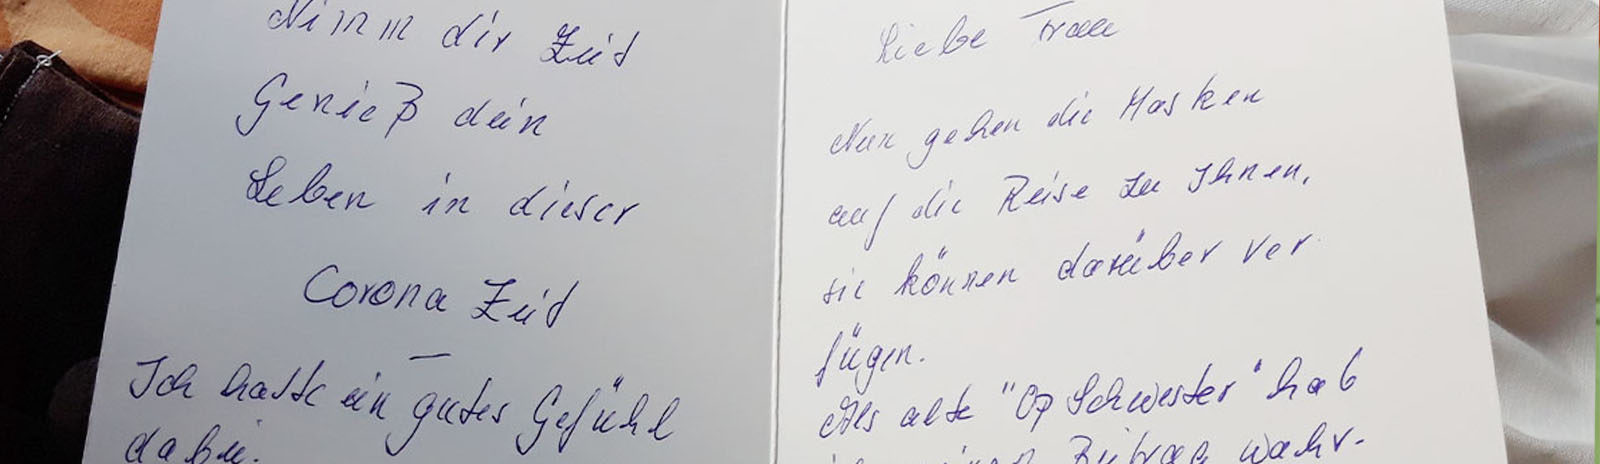 Nimm dir Zeit
Genieß dein
Leben in dieser
Corona Zeit
Ich hatte ein gutes Gefühl
dabei.
Liebe Frau
Nun gehen die Masken
auf die Reise zu Ihnen,
sie können darüber ver
fügen.
Als alte "Op Schwester" hab
ich einen Beitrag wahr-